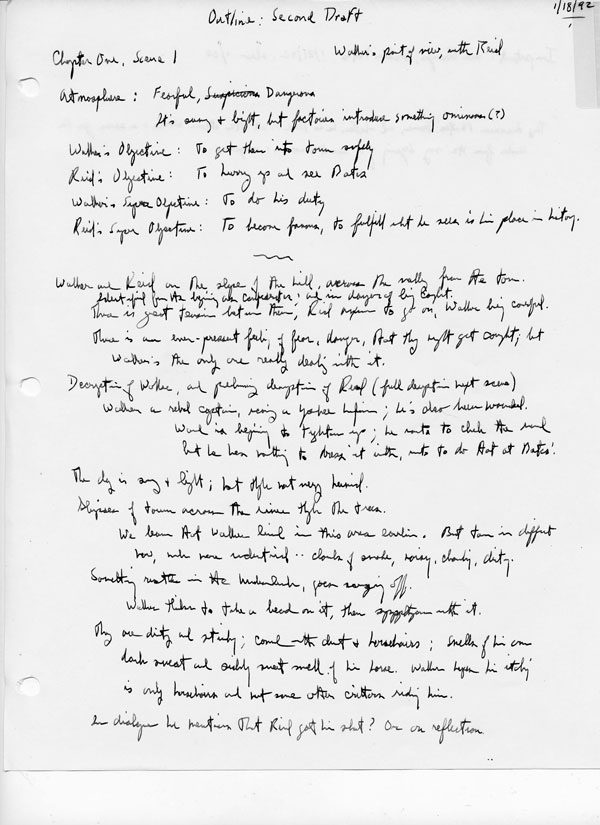 1/18/92
Outline: Second Draft
Chapter One, Scene 1 Walker's point of view, with Reid
Atmosphere: Fearful, Suspicious Dangerous
It's sunny & bright, but factories introduce something ominous (?)
Walker's Objective: To get them into town safely
Reid's Objective: To hurry up and see Bates
Walker's Super Objective: To do his duty
Reid's Super Objective: To become famous, to fulfill what he sees is his place in history.
Walker and Reid on the slope of the hill, across the valley from the town.
from the and in danger of being caught.
There is great tension between them; Reid to go on, Walker being careful.
There is an ever-present feeling of fear, danger, that they might get caught; but
Walker's the only one really dealing with it.
Description of Walker, and preliminary description of Reid (full description next scene)
Walker a rebel captain, wearing a Yankee uniform; he's also been wounded.
Wound is beginning to tighten up; he wants to check the wound
but he has nothing to dress it with, wants to do that at Bates'.
The day is sunny & bright; hot though not very humid.
Glimpses of town across the river through the trees.
We learn that Walker lived in this area earlier. But town is different
now, much more industrial -- clouds of smoke, noisy, cloudy, dirty.
Something rustles in the underbrush, goes running off.
Walker thinks to take a bead on it, then with it.
They are dirty and stinky; covered with dust & horsehairs; smells of his own
dark sweat and sweet smell of his horse. Walker hopes his itching
is only horsehairs and not some other critters riding him.
In dialogue he mentions that Reid got him shot? Or on reflection